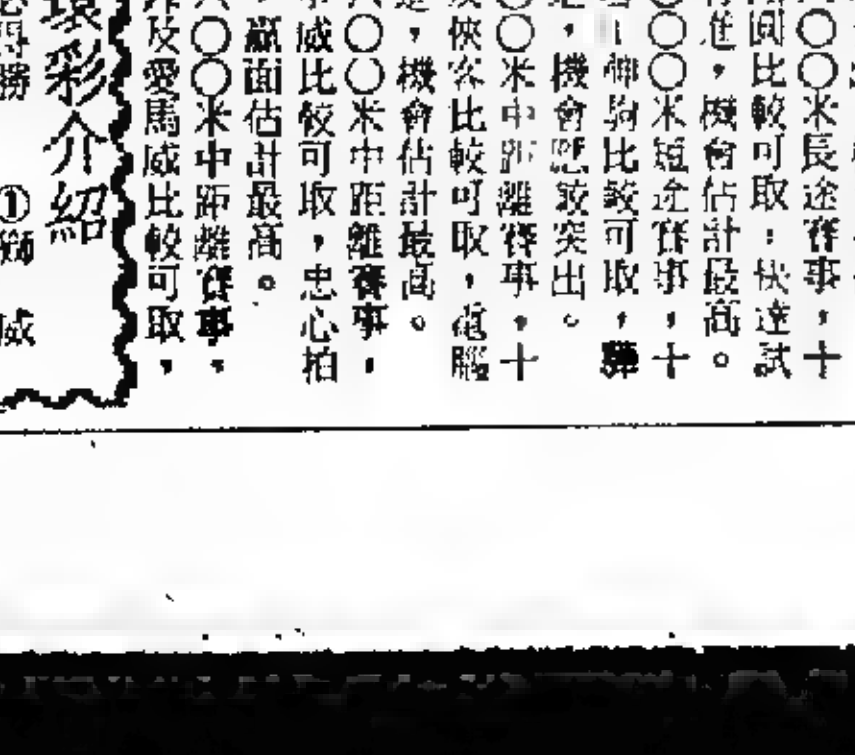 ○○米長途賽事，十
圓比較可取；快達試
進，機會估計最高。
○○米短途賽事，十
神駒比較可取，驊
，機會想較突出。
○米中距離賽事，十
俠客比較可取，電腦
，機會估計最高。
○米中距離賽事，
威比較可取，忠心拍
贏面估計最高。
○○米中距離賽事，
及愛馬威比較可取，
環彩介紹
得勝 ①獅 威